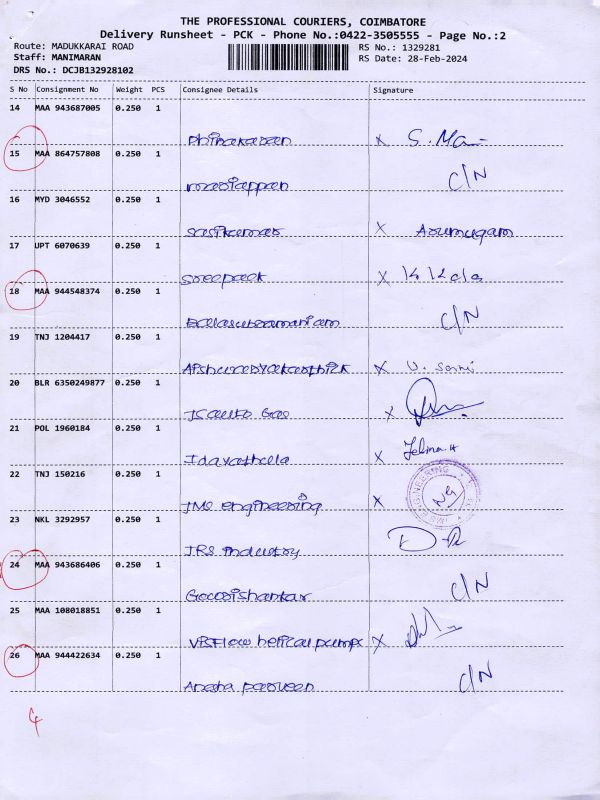 THE PROFESSIONAL COURIERS, COIMBATORE
Delivery Runsheet - PCK - Phone No.:0422-3505555 - Page No.:2
Route: MADUKKARAI ROAD RS No.: 1329281
Staff: MANIMARAN RS Date: 28-Feb-2024
DRS No.: DCJB132928102
S No Consignment No Weight PCS Consignee Details Signature
14 MAA 943687005 0.250 1
Dhinakaran X S. Mani
15 MAA 864757808 0.250 1
mariappan C/N
16 MYD 3046552 0.250 1
Sasikumar X Arumugam
17 UPT 6070639 0.250 1
Sreepack X
18 MAA 944548374 0.250 1
Balasubramaniam C/N
19 TNJ 1204417 0.250 1
X
20 BLR 6350249877 0.250 1
Gas X
21 POL 1960184 0.250 1
Idayathulla X
22 TNJ 150216 0.250 1
JMS engineering X
23 NKL 3292957 0.250 1
JRS industry
24 MAA 943686406 0.250 1
Gowrishankar C/N
25 MAA 108018851 0.250 1
Visflow helical pumps X
26 MAA 944422634 0.250 1
parveen C/N
4